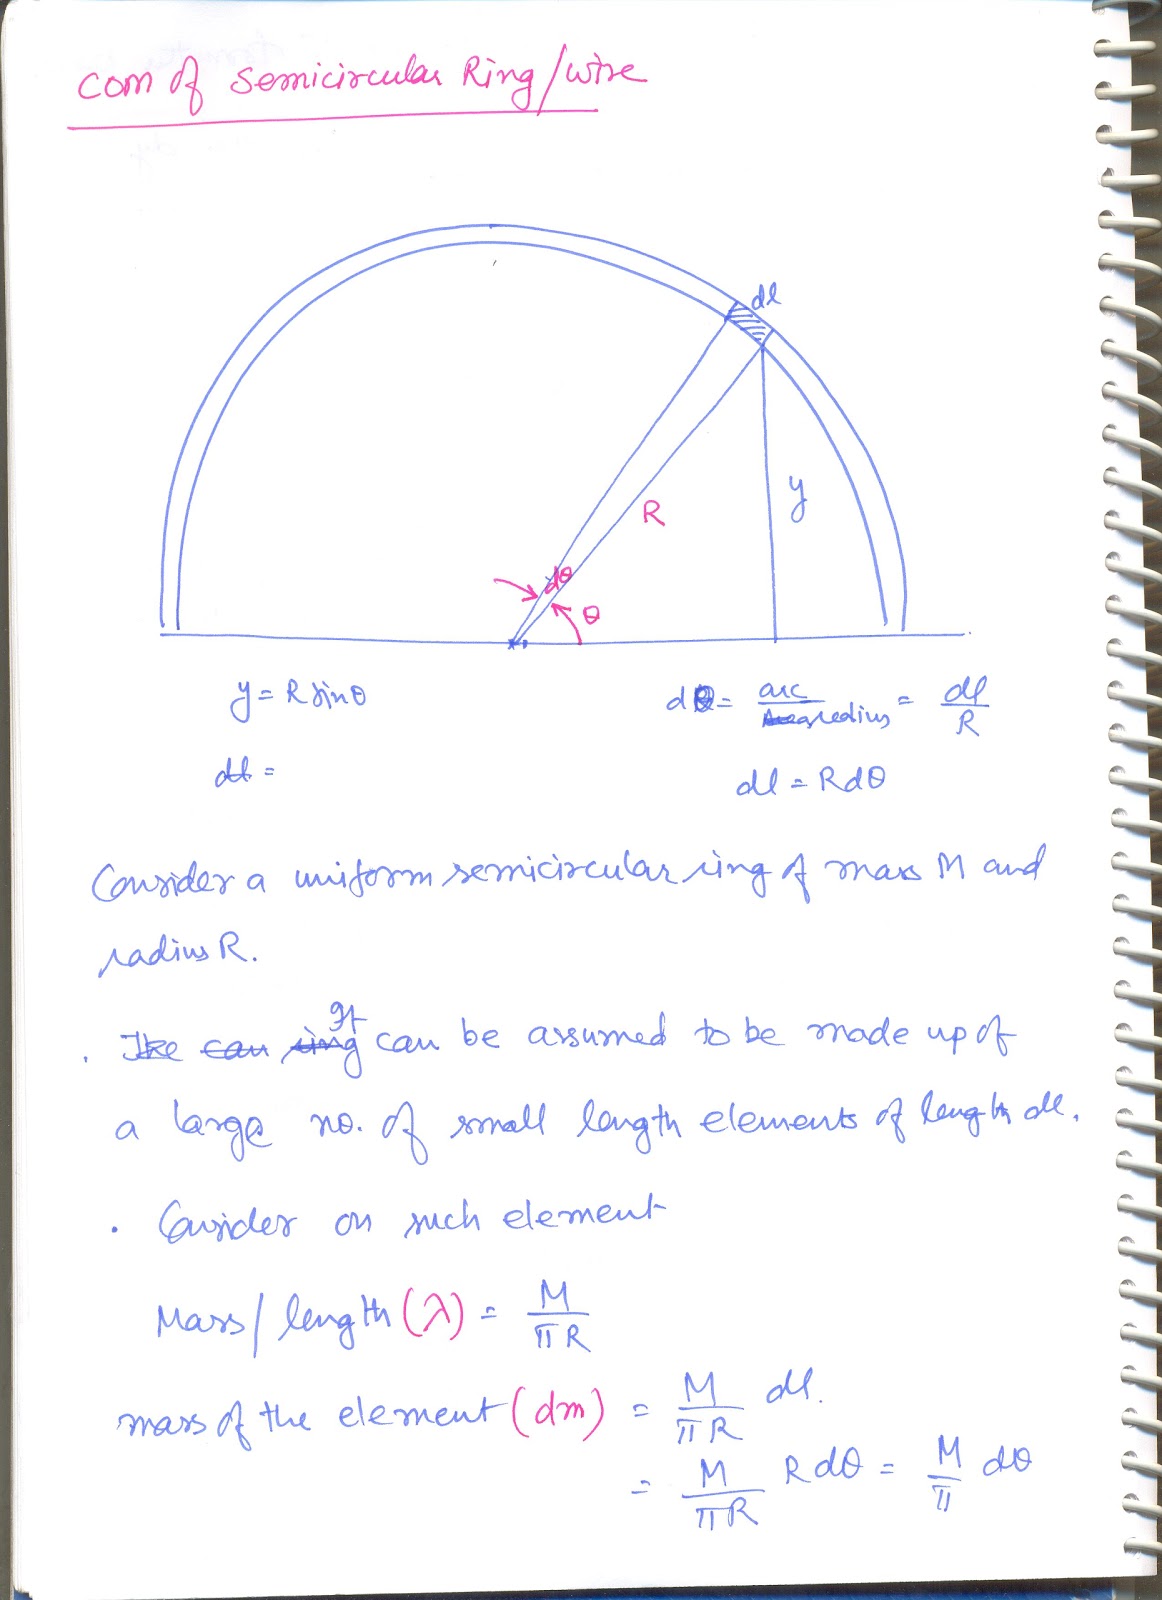 COM of Semicircular Ring/wire
dl
y
R
dθ
θ
y = R sinθ
dθ = arc/radius = dl/R
dl =
dl = Rdθ
Consider a uniform semicircular ring of mass M and
radius R.
. The can ring It can be assumed to be made up of
a large no. of small length elements of length dl.
. Consider on such element
Mass/length (λ) = M/πR
mass of the element (dm) = M/πR dl.
= M/πR Rdθ = M/π dθ